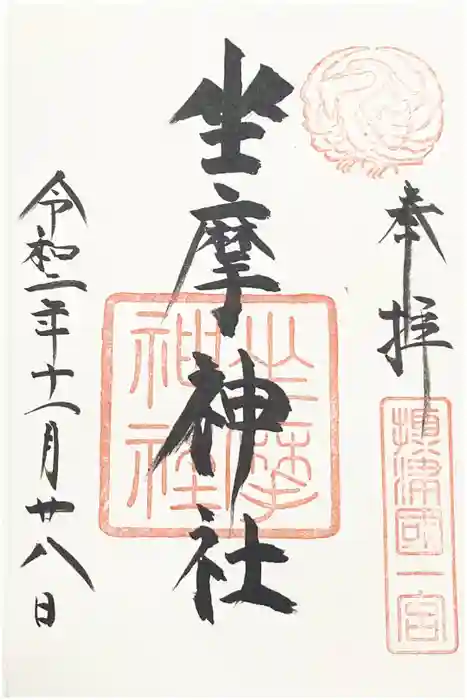 奉拝
摂津國一宮
坐摩神社
坐摩
神社
令和二年十一月廿八日